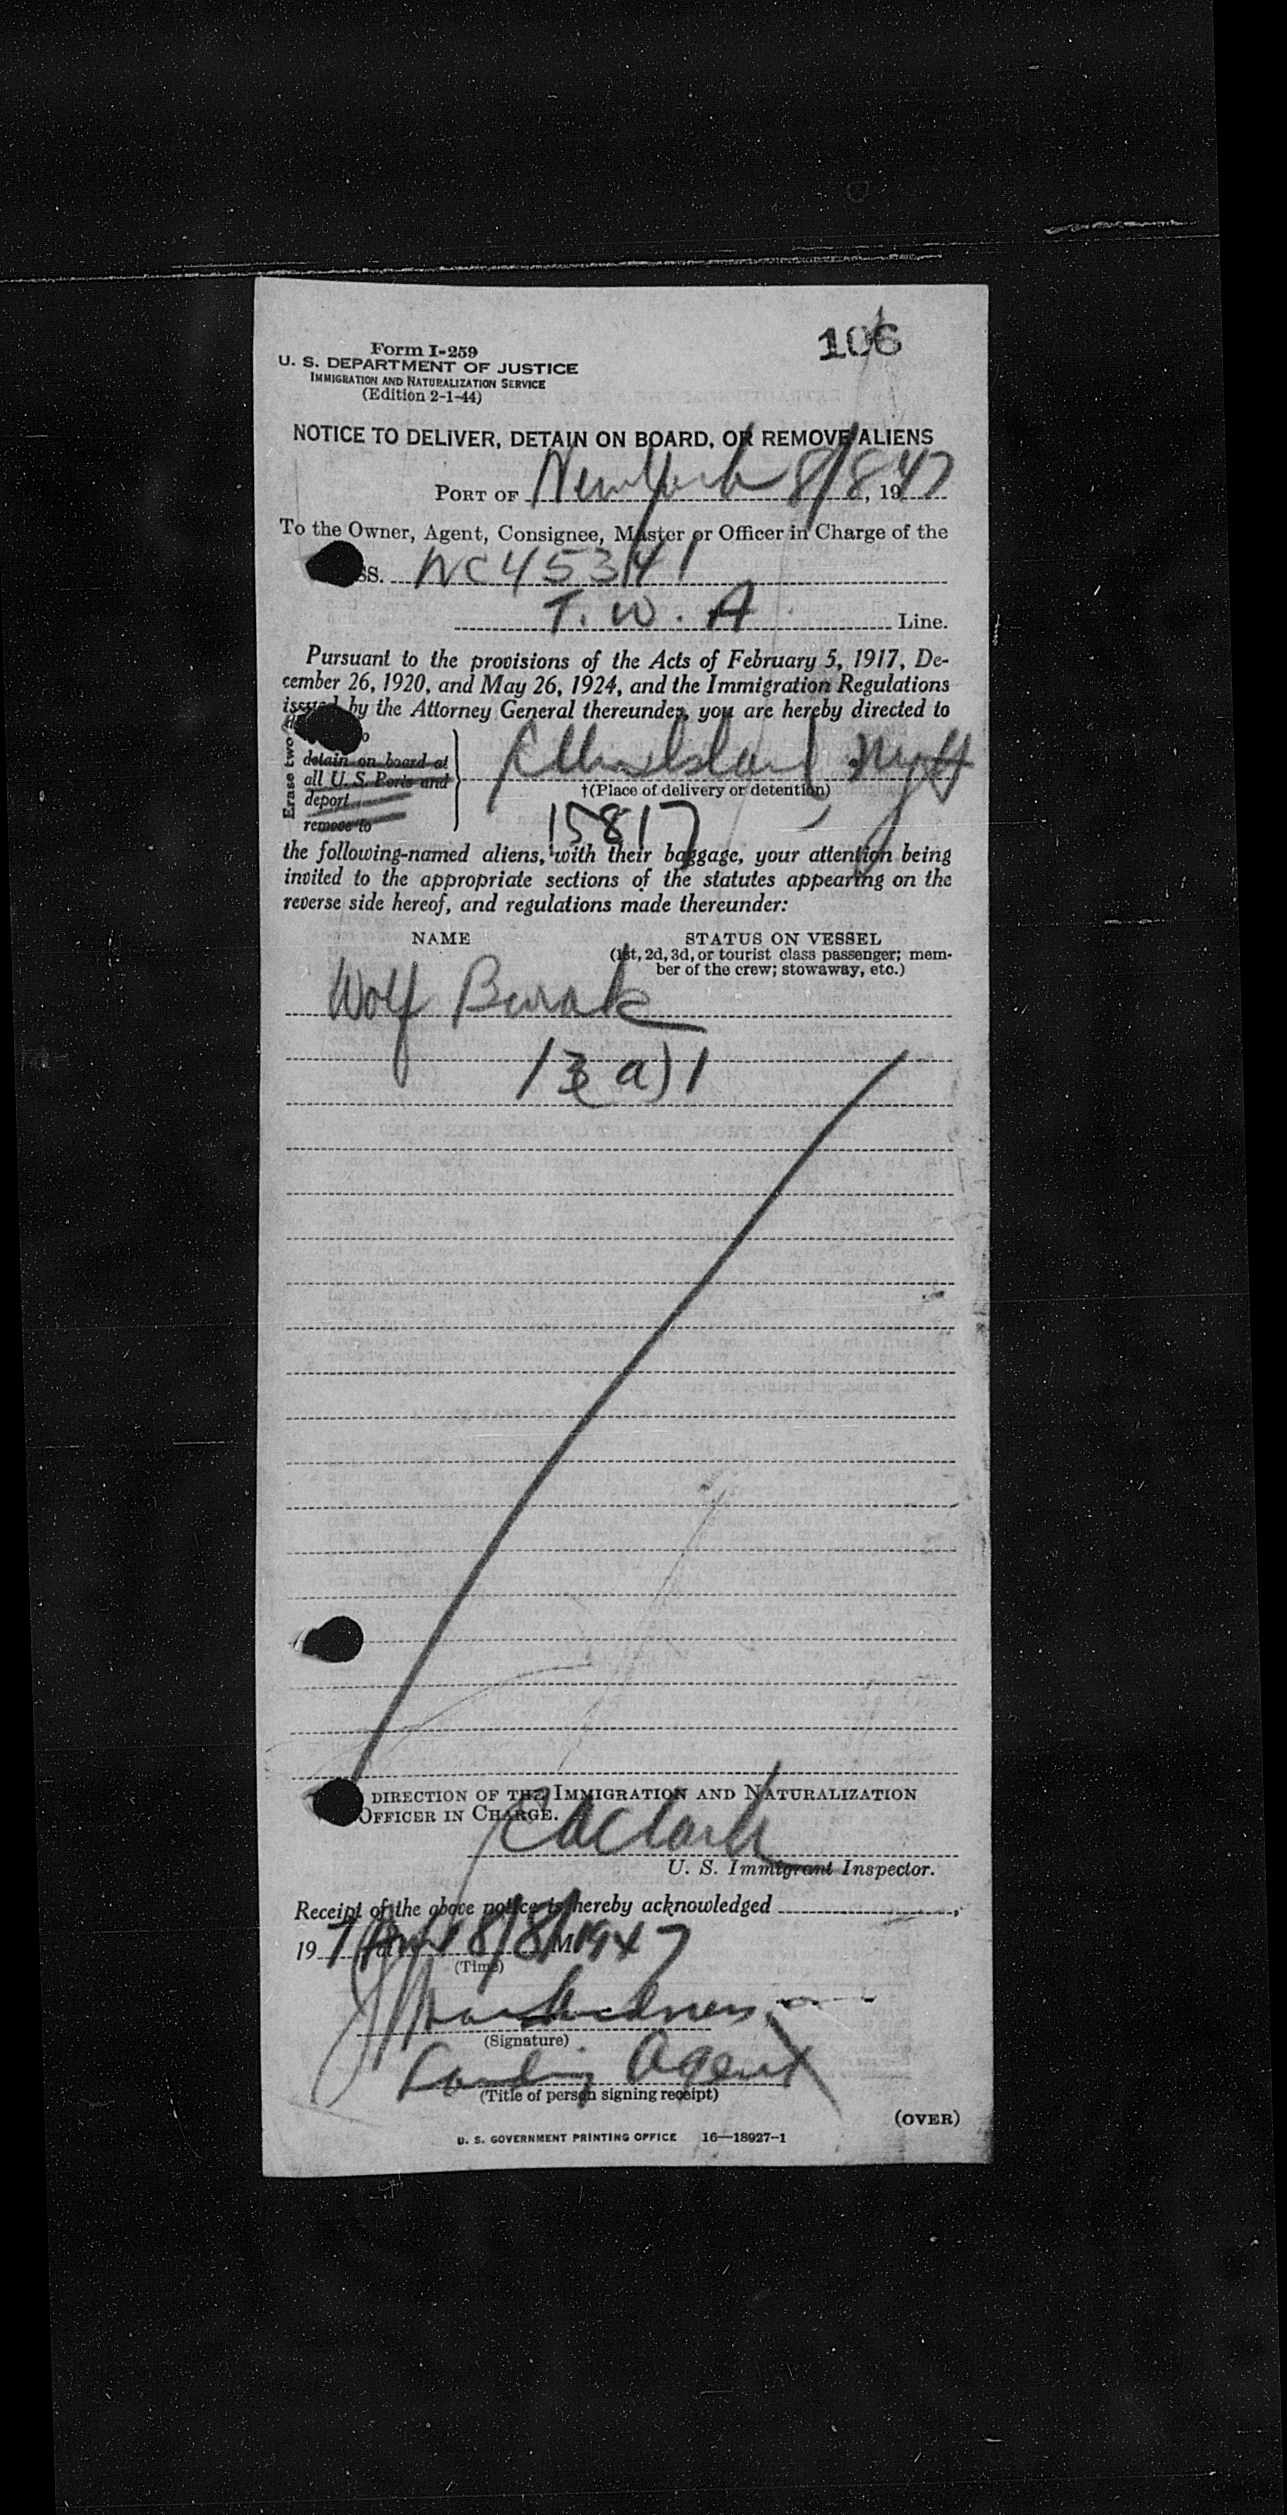 106
Form I-259
U. S. DEPARTMENT OF JUSTICE
IMMIGRATION AND NATURALIZATION SERVICE
(Edition 2-1-44)
NOTICE TO DELIVER, DETAIN ON BOARD, OR REMOVE ALIENS
PORT OF New York 8/8, 1947
To the Owner, Agent, Consignee, Master or Officer in Charge of the
SS. NC45341
T. W. A. Line.
Pursuant to the provisions of the Acts of February 5, 1917, De-
cember 26, 1920, and May 26, 1924, and the Immigration Regulations
issued by the Attorney General thereunder, you are hereby directed to
Erase two
detain on board at
all U. S. Ports and
deport
remove to
Ellis Island, NYH
†(Place of delivery or detention)
15817
the following-named aliens, with their baggage, your attention being
invited to the appropriate sections of the statutes appearing on the
reverse side hereof, and regulations made thereunder:
NAME STATUS ON VESSEL
(1st, 2d, 3d, or tourist class passenger; mem-
ber of the crew; stowaway, etc.)
Wolf Burak
13(a)1
DIRECTION OF THE IMMIGRATION AND NATURALIZATION
OFFICER IN CHARGE.
Clark
U. S. Immigrant Inspector.
Receipt of the above notice is hereby acknowledged ,
19 7 8/8/1947
(Time)
(Signature)
Landing Agent
(Title of person signing receipt)
(OVER)
U. S. GOVERNMENT PRINTING OFFICE 16—18927-1